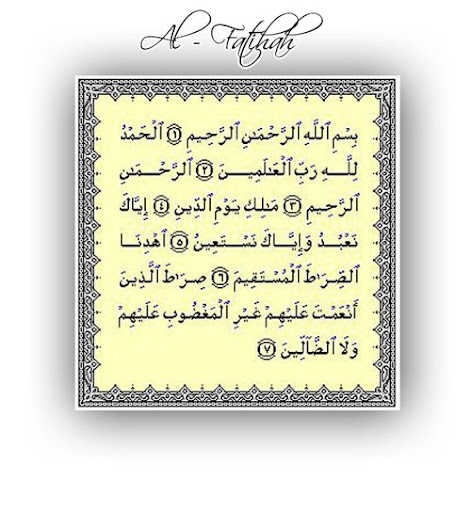 Al - Fatihah
بِسْمِ ٱللَّهِ ٱلرَّحْمَٰنِ ٱلرَّحِيمِ ۝١ ٱلْحَمْدُ
لِلَّهِ رَبِّ ٱلْعَٰلَمِينَ ۝٢ ٱلرَّحْمَٰنِ
ٱلرَّحِيمِ ۝٣ مَٰلِكِ يَوْمِ ٱلدِّينِ ۝٤ إِيَّاكَ
نَعْبُدُ وَإِيَّاكَ نَسْتَعِينُ ۝٥ ٱهْدِنَا
ٱلصِّرَٰطَ ٱلْمُسْتَقِيمَ ۝٦ صِرَٰطَ ٱلَّذِينَ
أَنْعَمْتَ عَلَيْهِمْ غَيْرِ ٱلْمَغْضُوبِ عَلَيْهِمْ
وَلَا ٱلضَّآلِّينَ ۝٧